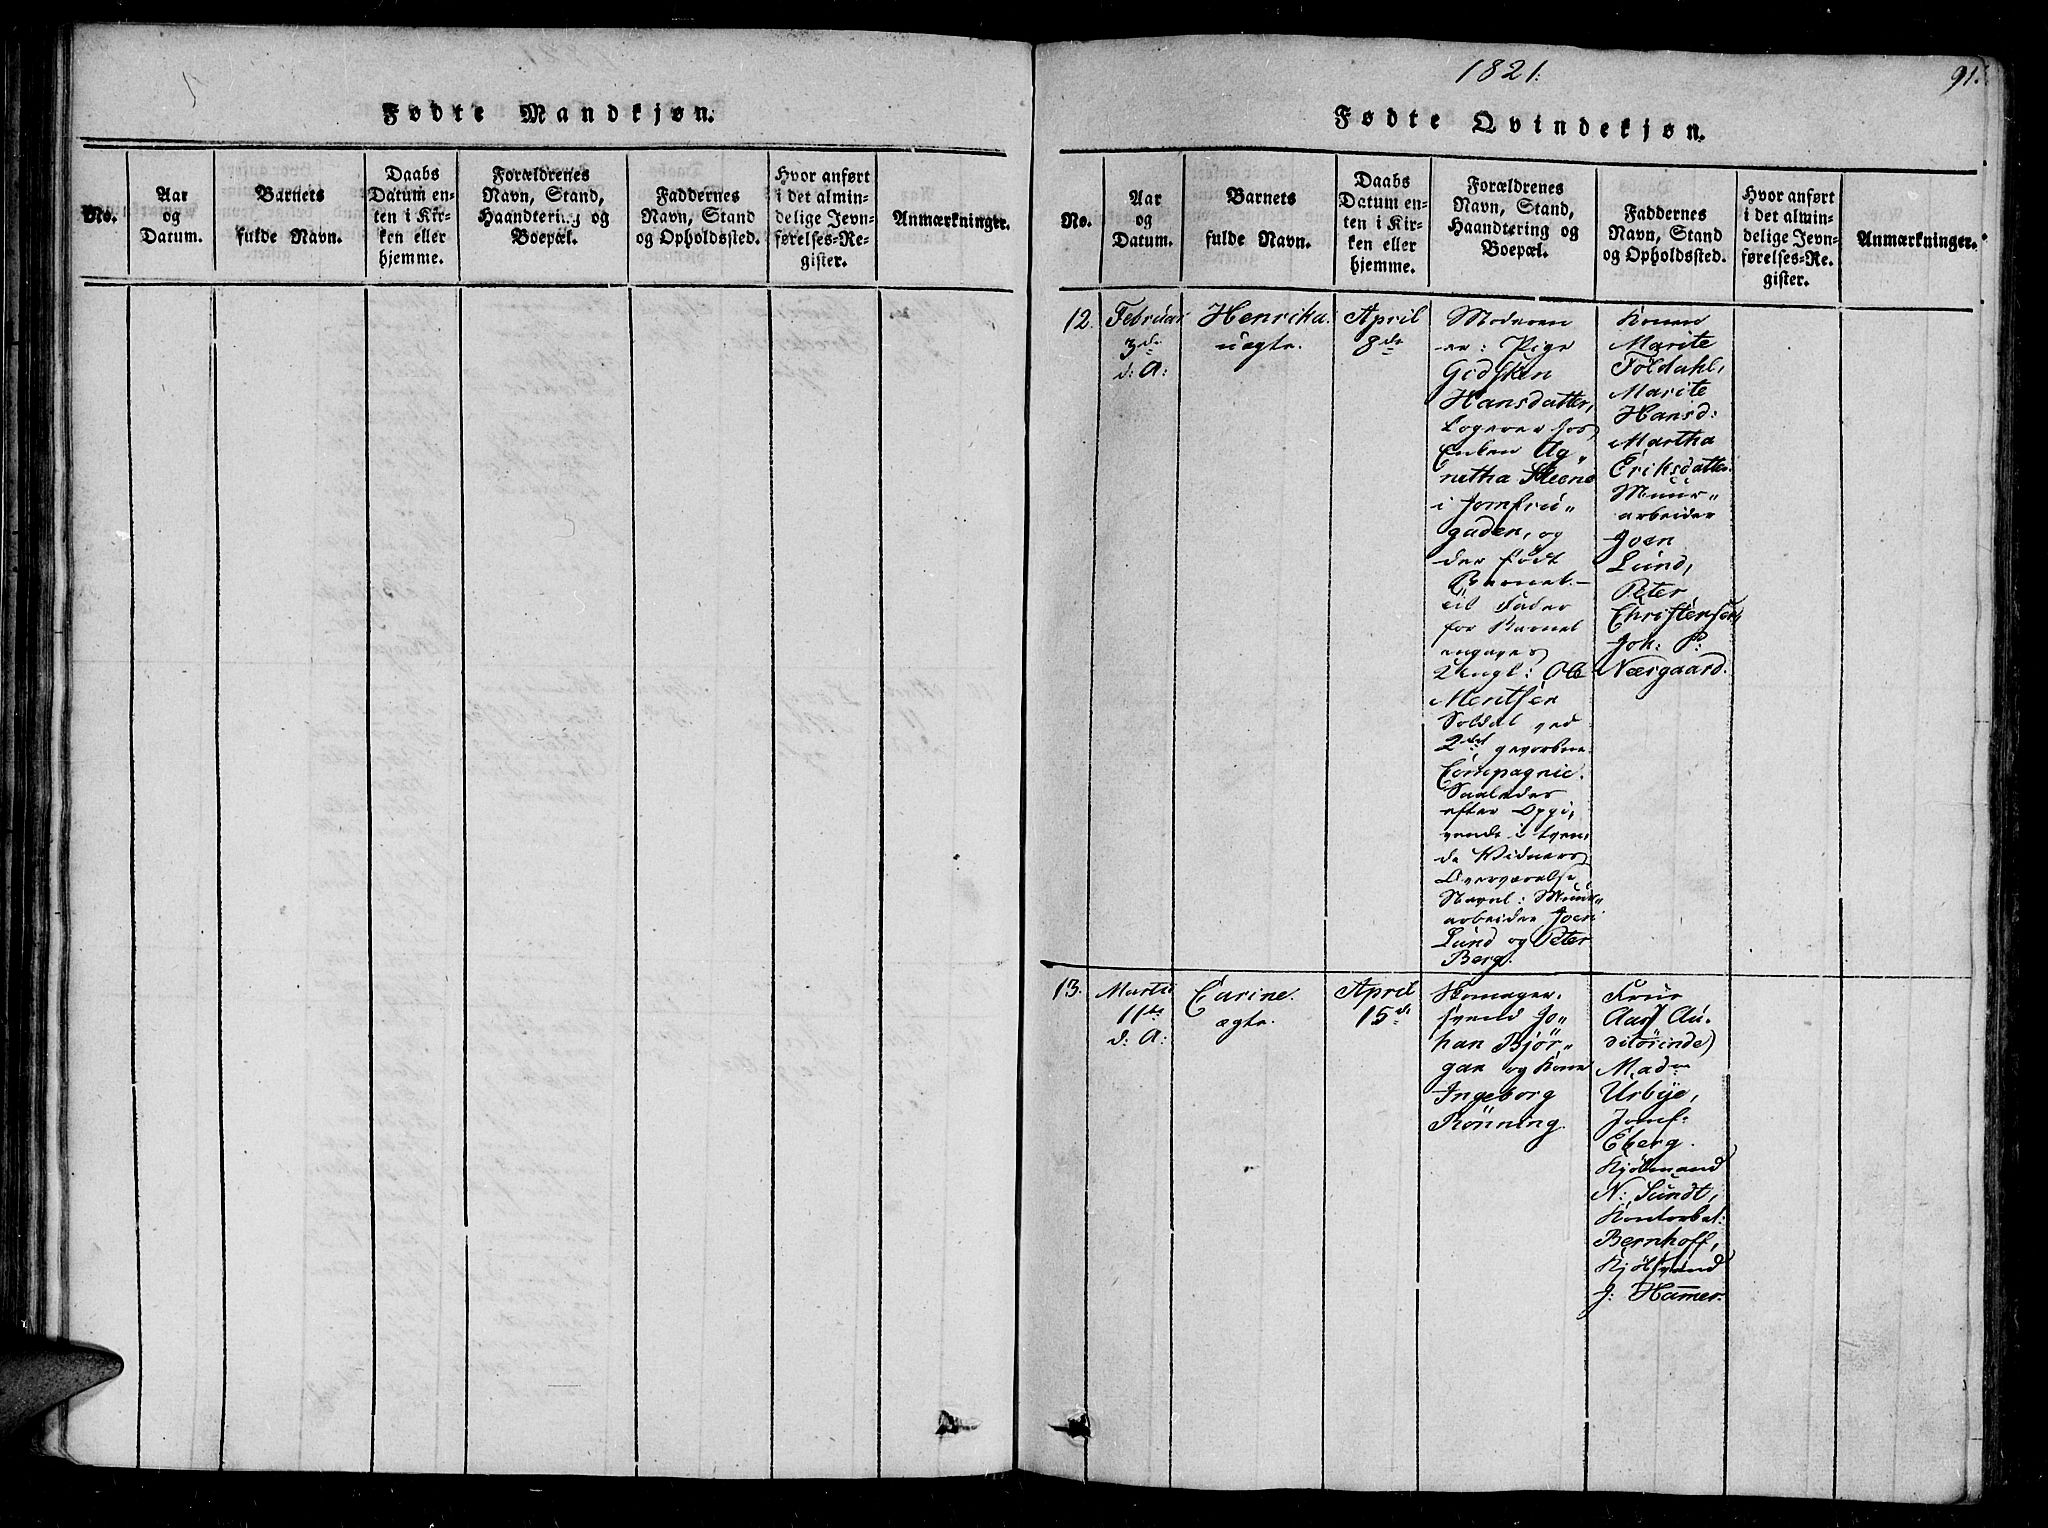 Fødte Mandkjøn.
No.
Aar
og
Datum.
Barnets
fulde Navn.
Daabs
Datum en-
ten i Kir-
ken eller
hjemme.
Forældrenes
Navn, Stand,
Haandtering og
Boepæl.
Faddernes
Navn, Stand
og Opholdssted.
Hvor anført
i det almin-
delige Jevn-
førelses-Re-
gister.
Anmærkninger.
1821.
91.
Fødte Qvindekjøn.
No.
Aar
og
Datum.
Barnets
fulde Navn.
Daabs
Datum en-
ten i Kir-
ken eller
hjemme.
Forældrenes
Navn, Stand,
Haandtering og
Boepæl.
Faddernes
Navn, Stand
og Opholdssted.
Hvor anført
i det almin-
delige Jevn-
førelses-Re-
gister.
Anmærkninger.
12.
Februar
3de
d: A:
Henrika.
uægte.
April
8de
Moderen
er: Pige
Gidsken
Hansdatter,
Logerer hos
Enken Ag„
netha Steene
i Jomfru„
gaden, og
der født
Barnet.—
til Fader
for Barnet
engives
Ungk: Ole
Meritsen
Soldat ved
2det gevorbne
Compagnie.
Saaledes
efter Opgi„
vende i tven„
de Vidners
Overværelse
Navnl: Muur„
arbeider Joen
Lund og Peter
Berg.
Konen
Marite
Foldahl,
Marite
Hansd:
Martha
Eriksdatter
Muur„
arbeider
Joen
Lund,
Peter
Christensen
Joh: P:
Næsgaard.
13.
Martii
11te
d: A:
Carine.
ægte.
April
15de
Skomager„
svend Jo„
han Bjør„
gan og Kone
Ingeborg
Rönning.
Frue
Aas (Au„
ditørinde)
Mad=
Urbye,
Jomf=
Eberg.
Kjøbmand
N: Lundt,
Kontorbet:
Bernhoff,
Kjøbsvend
J: Hammer.